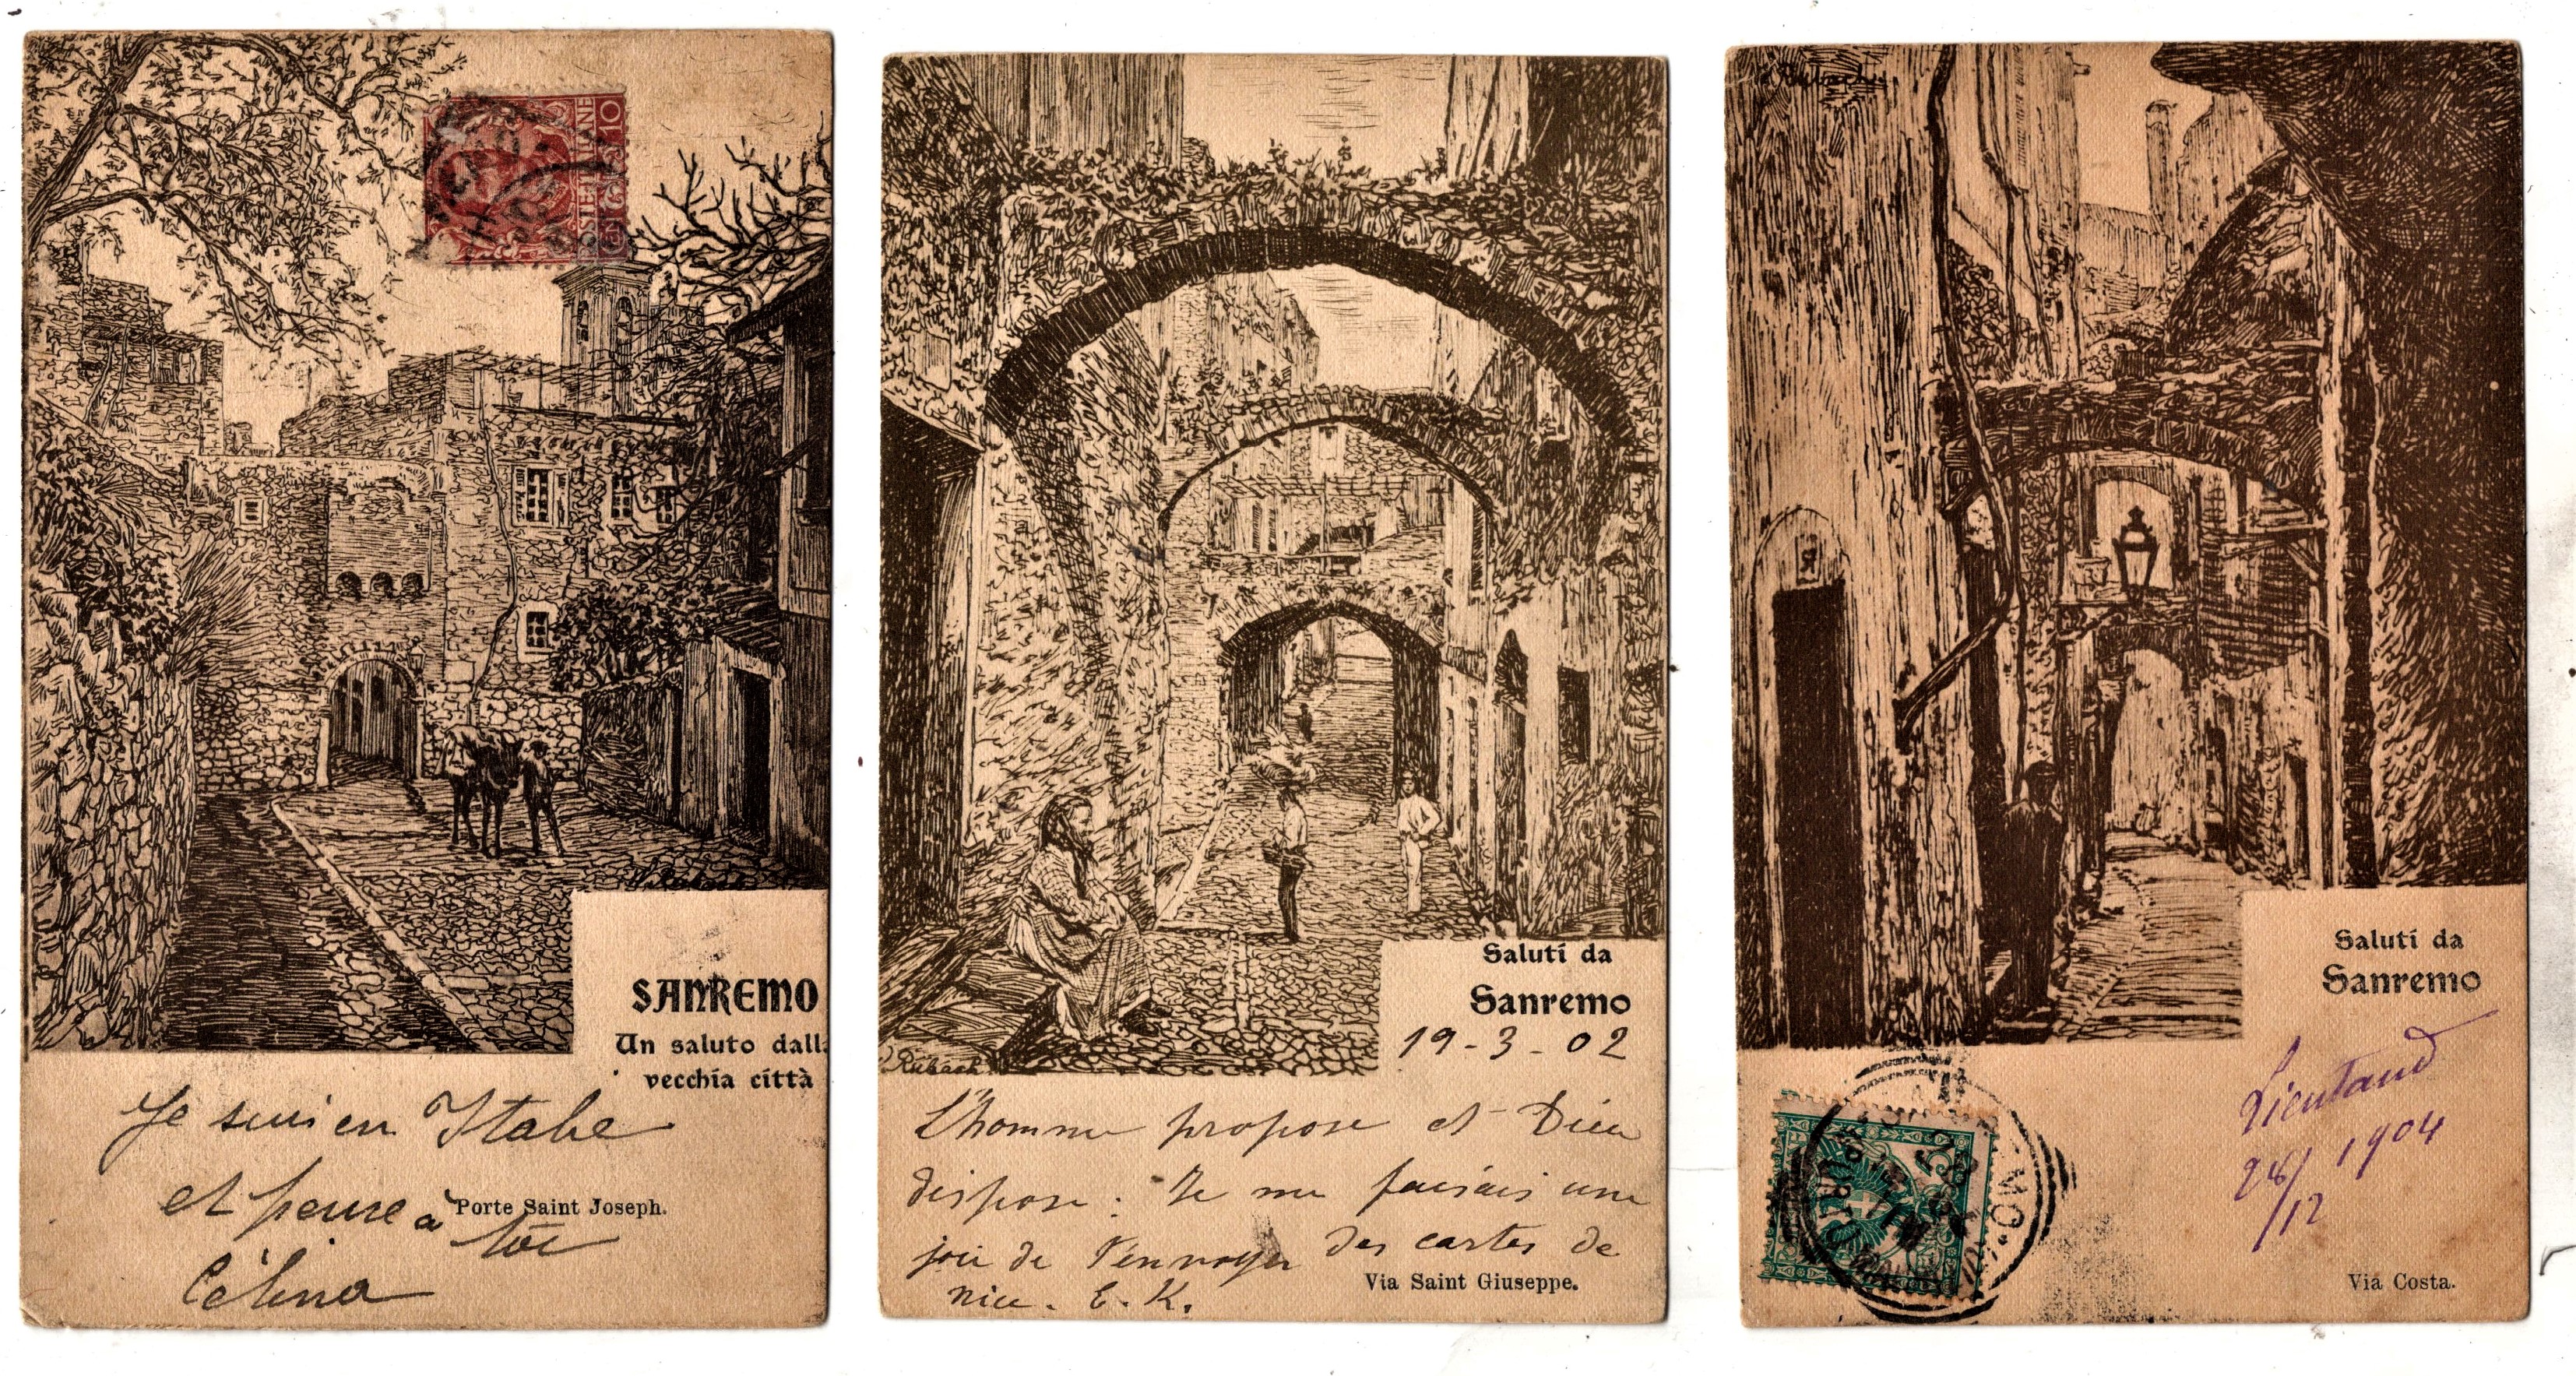 POSTE ITALIANE
10
Rubach
SANREMO
Un saluto dalla
vecchia città
Je suis en Italie
et pense à toi
Porte Saint Joseph.
Célina
Saluti da
Sanremo
19-3-02
Rubach
L'homme propose et Dieu
dispose : Je me faisais une
joie de t'envoyer des cartes de
Nice. E. K.
Via Saint Giuseppe.
Rubach
Saluti da
Sanremo
Lieutaud
26/12 1904
5
Via Costa.